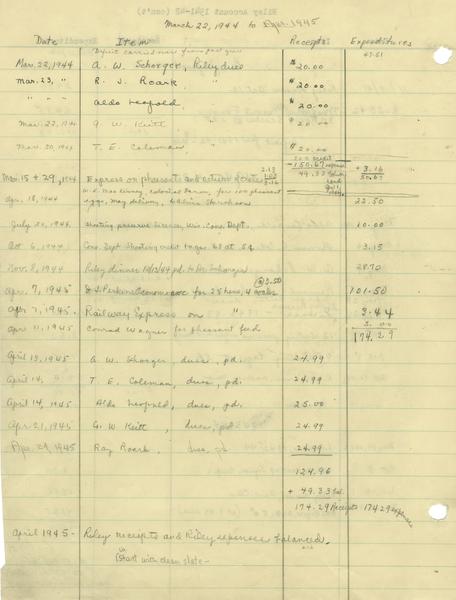 March 22, 1944 to Apr. 1945
Date Item Receipts Expenditures
Deficit carried over from last year 47.51
Mar. 22, 1944 A. W. Schorger, Riley dues $20.00
Mar. 23, " R. J. Roark $20.00
" " Aldo Leopold $20.00
Mar. 27, 1944 G. W. Keitt $20.00
Mar. 30, 1944 T. E. Coleman $20.00
Mar. 15 + 29, 1944 Express on pheasants and return of crates 2.13 1.03 3.16 + 3.16
50.67
49.33
Apr. 18, 1944 for 100 pheasant
eggs, May delivery, 22.50
July 20, 1944 Shooting preserve license, Wis. Cons. Dept. 10.00
Oct 6, 1944 Cons. Dept shooting 63 at 5¢ 3.15
Nov. 8, 1944 Riley dinner 10/13/44 pd. to Mr. Schorger 28.70
@3.50
Apr. 7, 1945 J. L. Perkins Oconomowoc for 25 hens, 4 cocks 101.50
Apr. 7, 1945 Railway Express on " 3.44
Apr 11, 1945 Conrad Wagner for pheasant feed 5.00
174.29
April 13, 1945 A. W. Schorger, dues, pd. 24.99
April 14, T. E. Coleman, dues, pd. 24.99
April 14, 1945 Aldo Leopold, dues, pd. 25.00
Apr. 21, 1945 G. W. Keitt, dues, pd. 24.99
Apr. 29, 1945 Ray Roark, dues, pd 24.99
124.96
+ 49.33 bal.
174.29 Receipts 174.29 expenses
April 1945 - Riley receipts and Riley expenses balanced.
Start with clean slate -